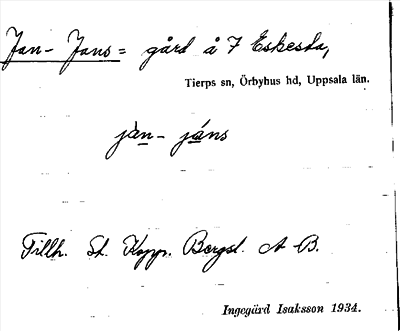 Jan-Jans = gård å 7 Eskesta,
Tierps sn, Örbyhus hd, Uppsala län.
jàn- jáns
Tillh. St. Kopp. Bergsl. A-B.
Ingegärd Isaksson 1934.